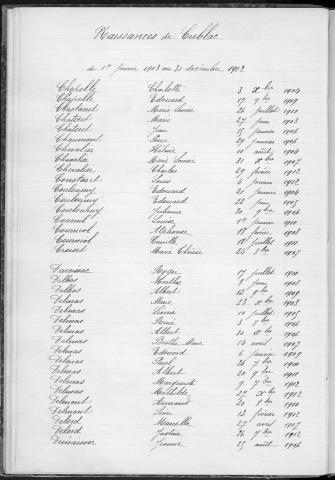 Naissances de Cublac
du 1er Janvier 1903 au 31 décembre 1912
Chapelle Charlotte 3 Xbre 1904
Chapelle Edouard 17 9bre 1909
Chastanet Marie Louise 26 juillet 1911
Chateret Marie 27 juin 1903
Chateret Jean 15 janvier 1906
Chaumont Pierre 29 janvier 1906
Chevalier Hélène 10 août 1908
Chevalier Marie Louise 31 Xbre 1907
Chevalier Charles 29 février 1912
Constant Louis 4 janvier 1912
Coulaumy Edouard 21 janvier 1906
Coulaumy Edouard 22 juin 1905
Coulaumy Johanne 30 9bre 1906
Cournil Louis 1er janvier 1910
Courniol Alphonse 18 février 1908
Courniol Camille 18 juillet 1911
Croisit Marie Thérèse 24 7bre 1907
Darcissac Roger 17 juillet 1910
Delbos Marthe 9 juin 1908
Delbos Albert 12 9bre 1909
Delmas Marie 23 Xbre 1903
Delmas Léonie 10 juillet 1905
Delmas René 3 7bre 1906
Delmas Albert 20 Xbre 1906
Delmas Berthe Marie 14 avril 1907
Delmas Edouard 6 janvier 1909
Delmas Paul 26 7bre 1910
Delmas Albert 20 9bre 1911
Delmas Marguerite 9 7bre 1912
Delmas Mathilde 27 Xbre 1912
Delmont Armand 20 8bre 1910
Delmont Léon 12 février 1912
Delord Marcelle 27 avril 1907
Delord Justine 26 7bre 1912
Jeanne 25 août 1906